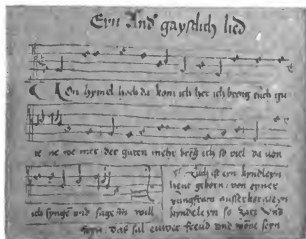 Eyn And gaystlich lied
On hymel hoch da kom ich her ich breng euch gu
te ne we mer der guten mehr breng ich so viel da von
ich synge und sage wll
Euch ist eyn kyndleyn
heut geborn von eyner
Jungfraw auserkorn eyn
kyndeleyn so zart und
feyn das sal ewer freud und wone seyn